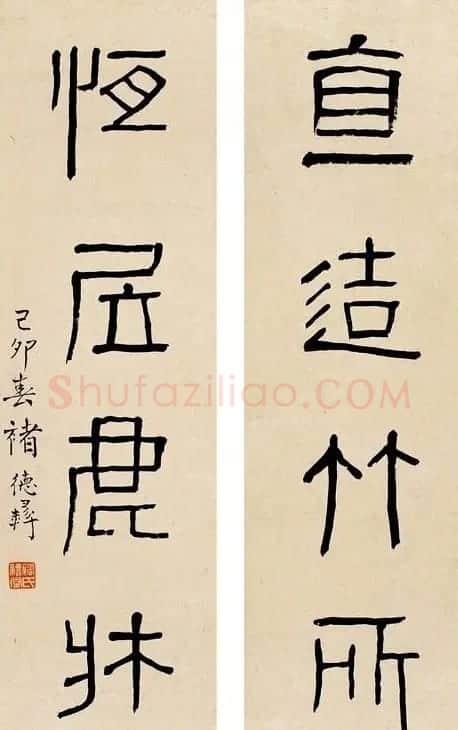 直造竹所
恒居鹿牀
己卯春褚德彝
Shufaziliao.COM